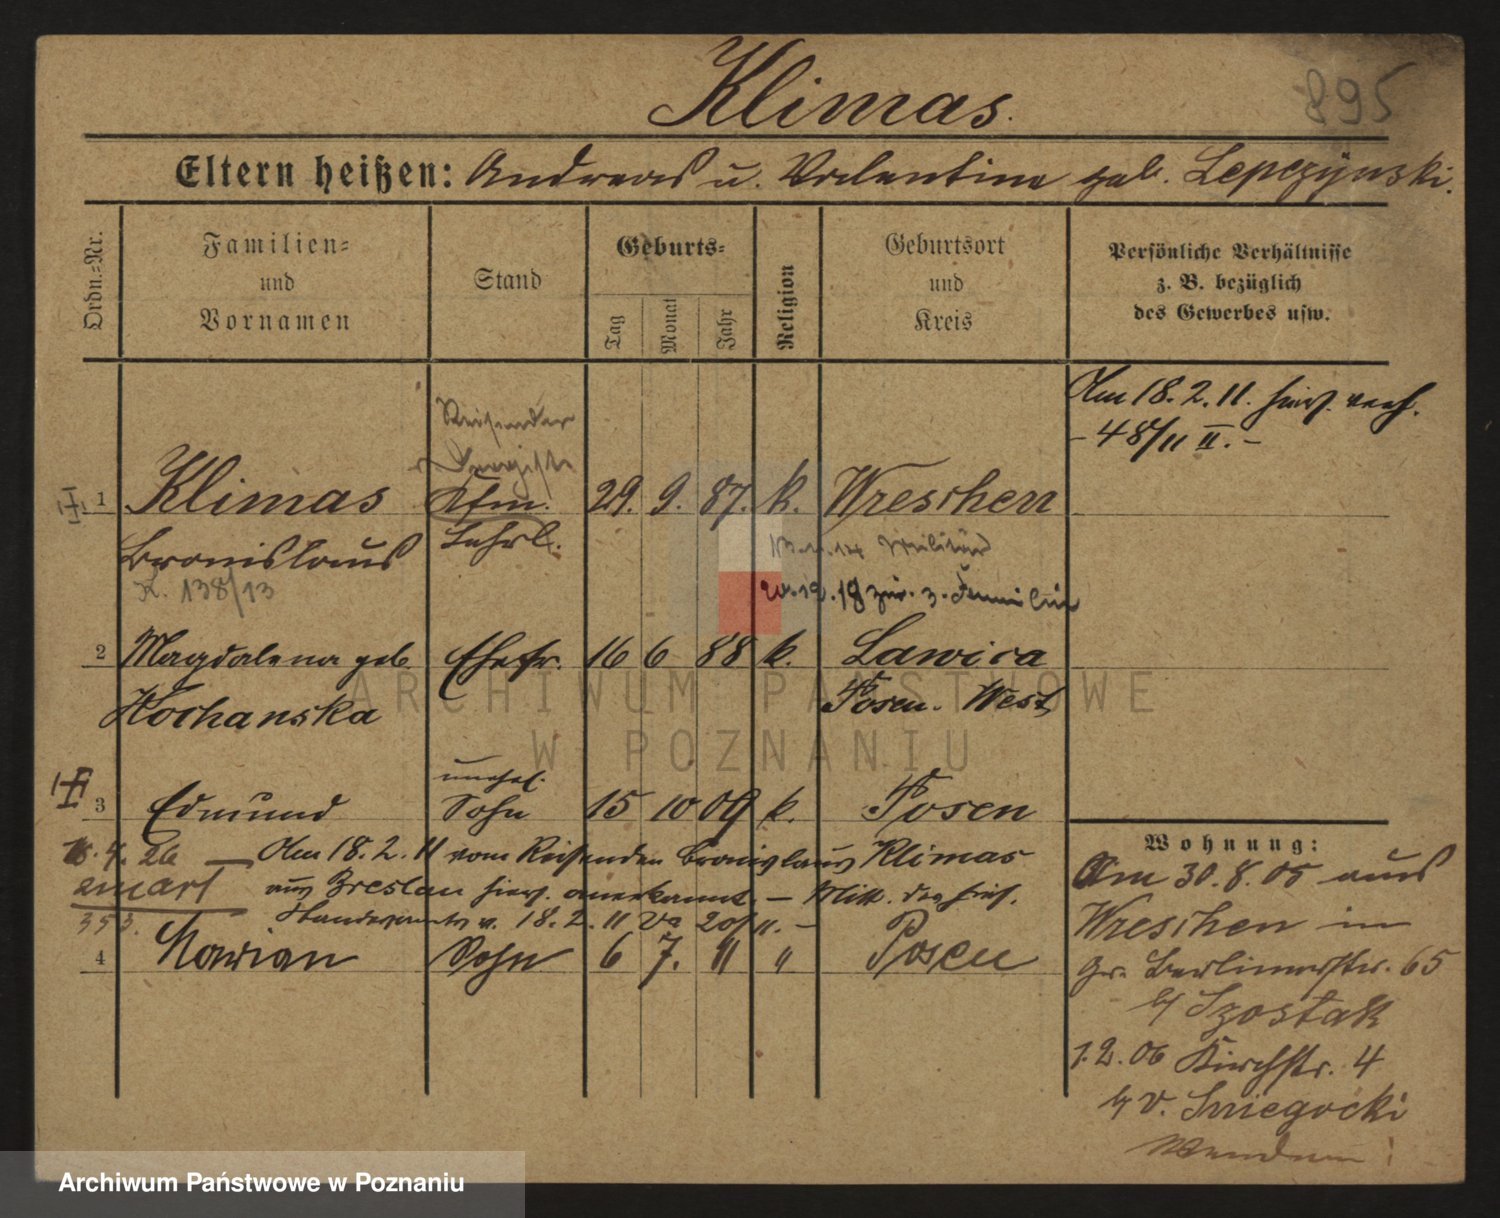 Klimas.
895
Eltern heißen: Andreas u. Valentine geb. Lepczynski.
Ordn.=Nr.
Familien=
und
Vornamen
Stand
Geburts=
Tag
Monat
Jahr
Religion
Geburtsort
und
Kreis
Persönliche Verhältnisse
z. B. bezüglich
des Gewerbes usw.
Am 18. 2. 11. hier verh.
- 48/11 II. -
Reisender
1 Klimas Kfm. 29. 9. 87. k. Wreschen
Bronislaus Lehrl.
Militär
K. 138/13
20.12.18 zur. z. Familie
2 Magdalena geb. Ehefr. 16 6 88 k. Lawica
Kochanska Posen. West
ARCHIWUM PAŃSTWOWE
W POZNANIU
unehel.
3 Edmund Sohn 15 10 09 k. Posen
4. 26 Am 18. 2. 11 vom Reisenden Bronislaus Klimas
aus Breslau hier anerkannt. - Mitt. des hies.
353. Standesamts v. 18. 2. 11 Va 20/11. -
4 Marian Sohn 6 7. 11 " Posen
Wohnung:
Am 30. 8. 05 aus
Wreschen in
Gr. Berlinerstr. 65
b/ Szostak
1. 2. 06 Kirchstr. 4
b/ v. Sniegocki
Archiwum Państwowe w Poznaniu